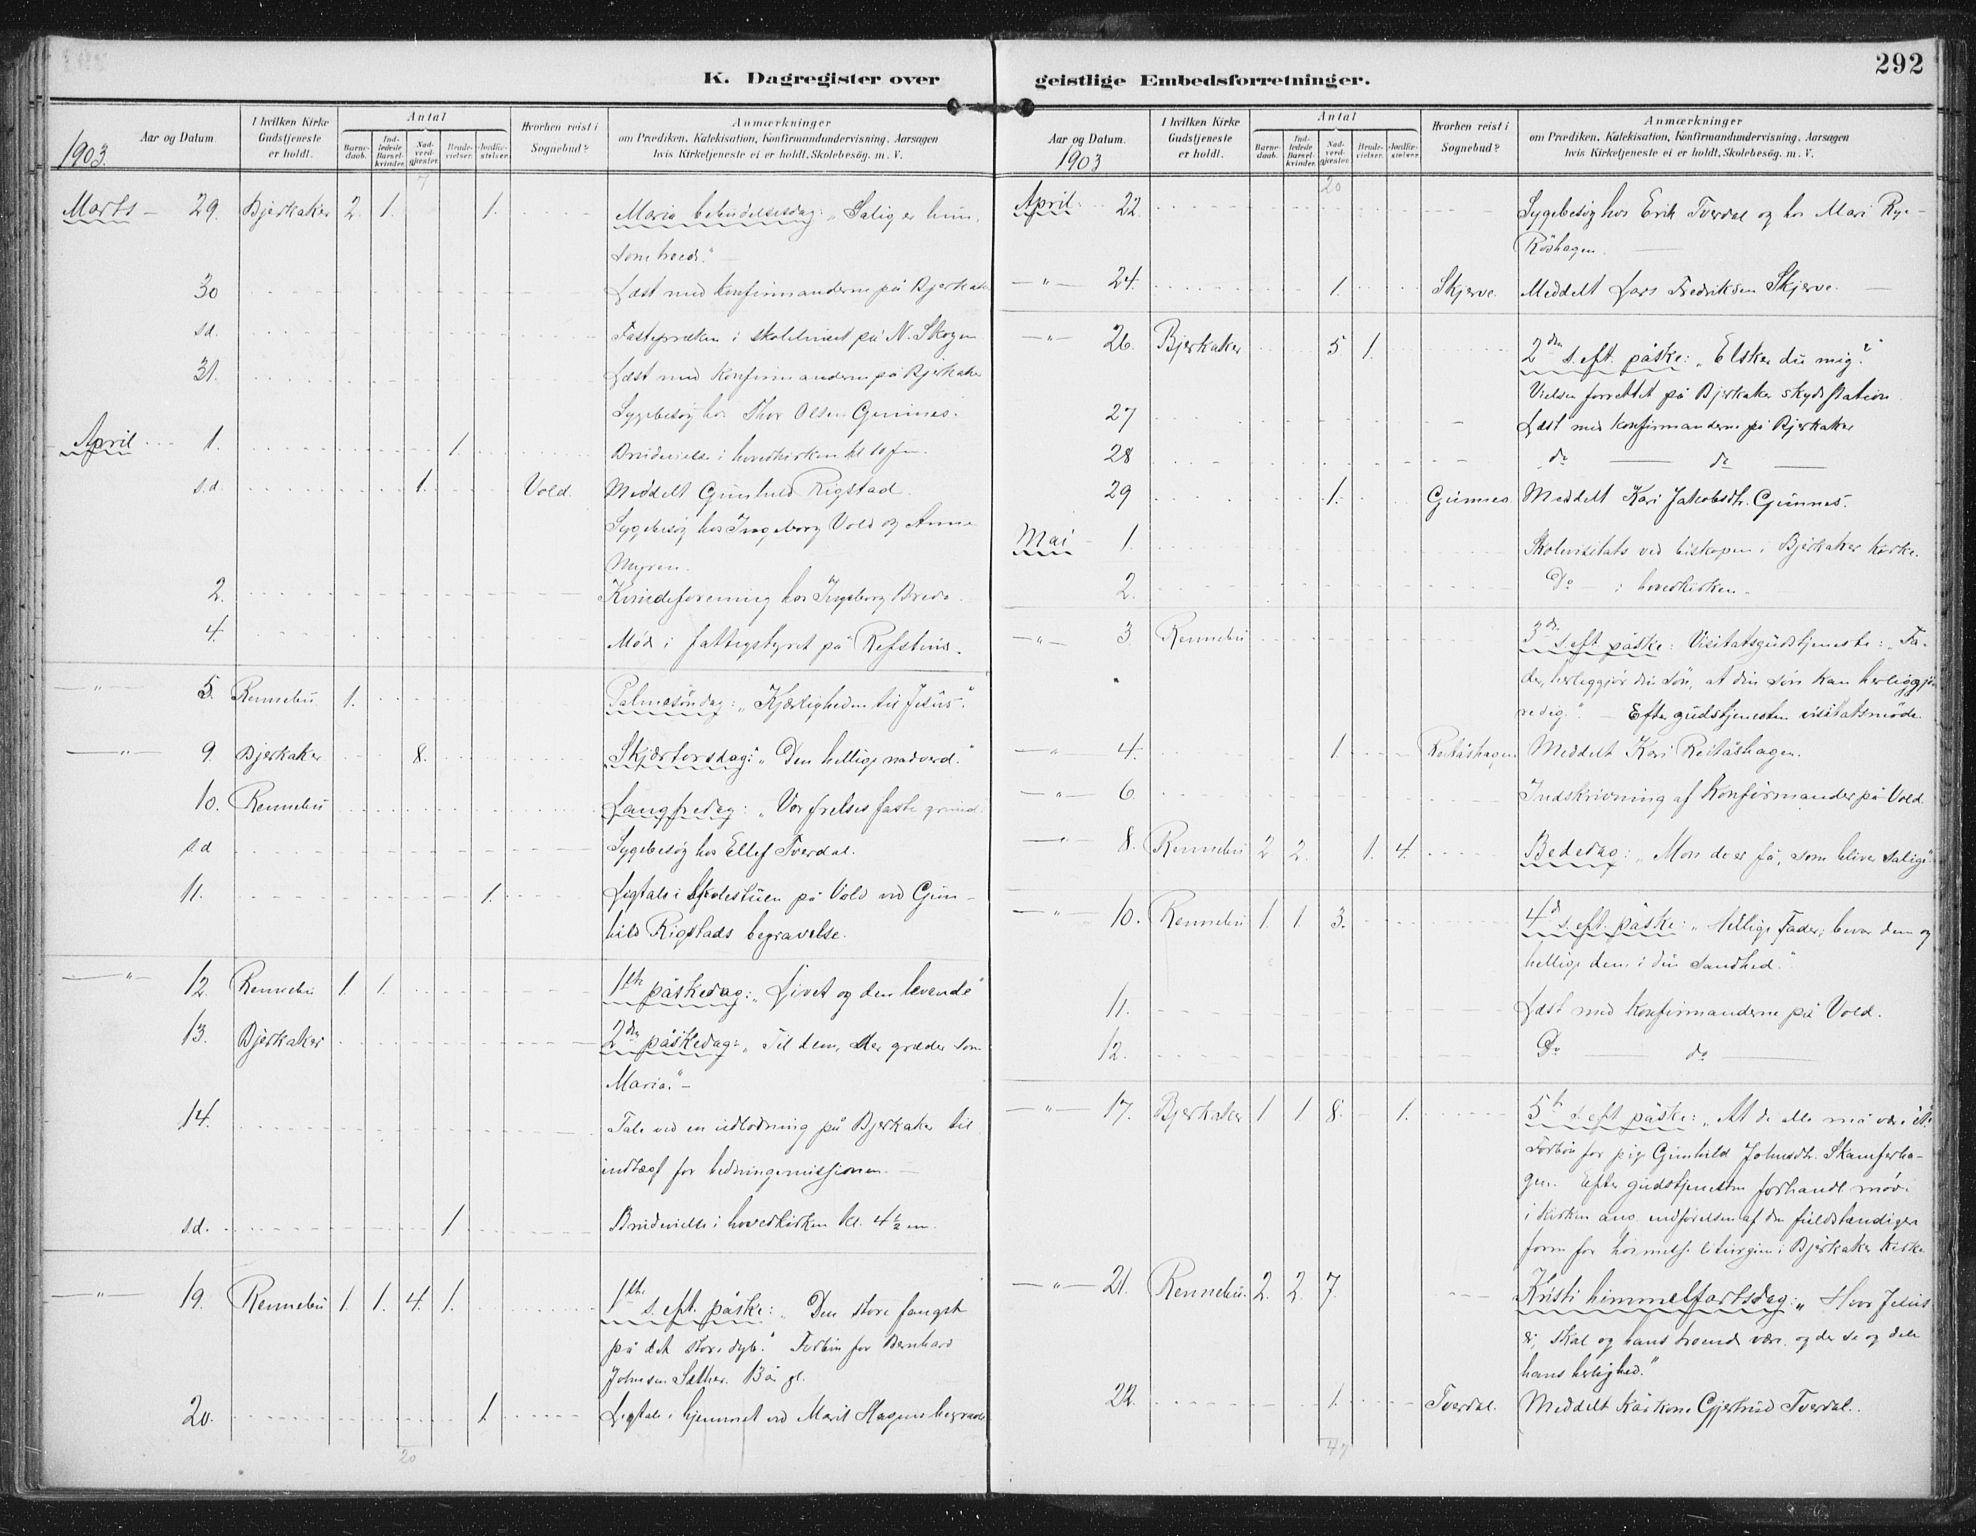 292
K. Dagregister over
1903.
Aar og Datum.
I hvilken Kirke Gudstjeneste er holdt.
Antal
Barne-daab.
Ind-ledede Barsel-kvinder.
Nad-verd-gjester.
Brude-vielser.
Jordfæ-stelser.
Hvorhen reist i Sognebud?
Anmærkninger
om Prædiken, Katekisation, Konfirmandundervisning, Aarsagen
hvis Kirketjeneste ei er holdt, Skolebesøg. m. V.
7
Marts 29. Bjerkaker 2. 1. 1. Maria bebudelsesdag: „Salig er hun,
som troede."
30 Læst med konfirmanderne på Bjerkaker
s.d. Fastepræken i skolehuset på N. Skogen
31. Læst med konfirmanderne på Bjerkaker
Sygebesøg hos Thor Olsen Gunnes.
April 1. 1. Brudevielse i hovedkirken kl. 10 fm.
s.d. 1. Vold. Meddelt Gunhild Rigstad.
Sygebesøg hos Ingeborg Vold og Anne
Myren.
2. Kvindeforening hos Ingeborg Brede.
4. Møde i fattigstyret på
-„- 5. Rennebu 1. Palmesøndag: „Kjærligheden til Jesus".
-„- 9. Bjerkaker 8. Skjærtorsdag: „Den hellige nadverd."
10. Rennebu Langfredag: „Vor frelses faste grund.
s.d Sygebesøg hos Ellef Tverdal.
11. 1. Ligtale i Skolestuen på Vold ved Gun-
hild Rigstads begravelse.
-„- 12. Rennebu 1. 1. 1ste påskedag: „Livet og den levende"
13. Bjerkaker 2den påskedag: „Til dem, der græder som
Maria." -
14. Tale ved en udlodning på Bjerkaker til
indtægt for hedningemissjonen. -
s.d. 1. Brudevielse i hovedkirken kl. 4½ em.
-„- 19. Rennebu 1. 1. 4. 1. 1ste s. eft. påske: „Den store fangst
på det store dyb." Forbøn for Bernhard
Johnsen Sæther.
20. 1. Ligtale i hjemmet ved Marit Hagens begravelse
20
geistlige Embedsforretninger.
Aar og Datum.
1903
I hvilken Kirke Gudstjeneste er holdt.
Antal
Barne-daab.
Ind-ledede Barsel-kvinder.
Nad-verd-gjester.
Brude-vielser.
Jordfæ-stelser.
Hvorhen reist i Sognebud?
Anmærkninger
om Prædiken, Katekisation, Konfirmandundervisning, Aarsagen
hvis Kirketjeneste ei er holdt, Skolebesøg. m. V.
20
April. 22. Sygebesøg hos Erik Tverdal og hos Mari Rye-
Röshagen.
-„- 24. 1. Skjerve. Meddelt Lars Fredriksen Skjerve.
-„- 26. Bjerkaker 5 1. 2den s. eft. påske: „Elsker du mig?"
Vielsen forrettet på Bjerkaker skydsstation.
27 Læst med konfirmanderne på Bjerkaker
28 do - do -
29 1. Gunnes Meddelt Kari Jakobsdtr. Gunnes.
Mai 1. Skolevisitats ved biskopen i Bjerkaker kirke.
2. Do - i hovedkirken.
-„- 3. Rennebu 3die s. eft. påske: Visitatsgudstjeneste: „Fa-
der, herliggjør din søn, at din søn kan herliggjø-
re dig." - Efter gudstjenesten visitatsmøde.
-„- 4. 1. Reitåshagen Meddelt Kari Reitåshagen.
-„- 6. Indskrivning af Konfirmander på Vold
-„- 8. Rennebu 2 2. 1. 4. Bededag: „Mon de er få, som bliver salige".
-„- 10. Rennebu 1. 1 3. 4de s. eft. påske: „Hellige Fader, bevar dem og
hellige dem i din sandhed."
11. Læst med konfirmanderne på Vold.
12. Do - do -
-„- 17. Bjerkaker 1 1 8. 1. 5te s. eft. påske: „At de alle må være ét".
Forbøn for pig. Gunhild Johnsdtr. Skamferha-
gen. Efter gudstjenesten forhandl. møde
i kirken ang. indførelsen af den fuldstændigere
form for høimesseliturgien i Bjerkaker kirke
-„- 21. Rennebu. 2. 2. 7. Kristi himmelfartsdag: „Hvor Jesus
er, skal og hans troende være og der se og dele
hans herlighed."
22. 1. Tverdal. Meddelt Kårkone Gjertrud Tverdal.
47